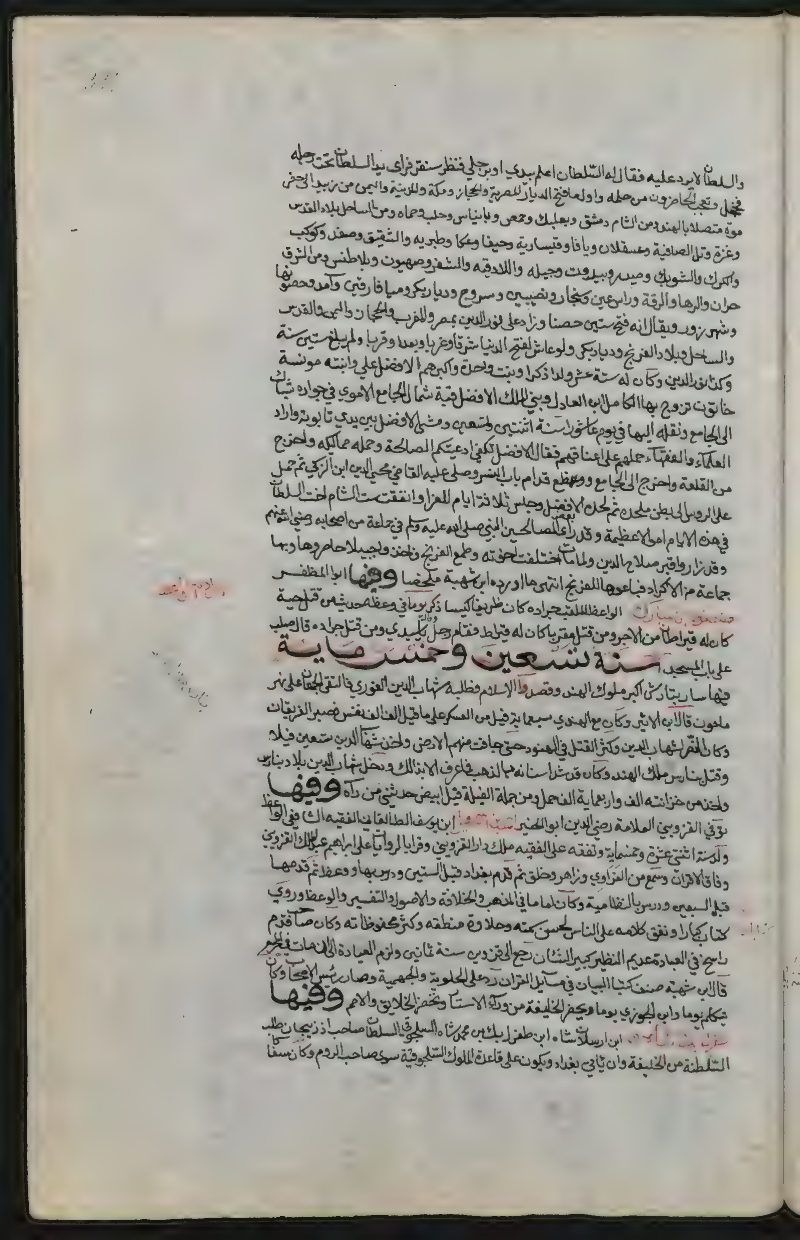 والسلطان لا يرد عليه فقال له السلطان اعلم بيدي او برجلي فنظر سنقر فراى يد السلطان تحت رجله
فخجل وتعجب الحاضرون من حلمه واول ما فتح الديار المصرية والحجاز ومكة والمدينة واليمن من زبيد الى حضر
موت متصلا بالهند ومن الشام دمشق وبعلبك وحمص وبانياس وحلب وحماه ومن الساحل بلاد القدس
وغزة وتل الصافية وعسقلان ويافا وقيسارية وحيفا وعكا وطبريه والشقيق وصفد وكوكب
والكرك والشوبك وصيدا وبيروت وجبله واللاذقيه والشغر وصهيون وبلاطنس ومن الشرق
حران والرها والرقة وراس عين وسنجار ونصيبين وسروج وديار بكر وميافارقين وآمد وحصونها
وشهرزور ويقال انه فتح ستين حصنا وزاد على نور الدين بمصر والمغرب والحجاز واليمن والقدس
والساحل وبلاد الفرنج وديار بكر ولو عاش لفتح الدنيا شرقا وغربا وبعدا وقربا ولم يبلغ ستين سنة
وكان له ستة عشر ولدا ذكرا وبنت واحدة واكبرهم الافضل على وابنته مونسة
خاتون تزوج بها الكامل ابن العادل وبنى الملك الافضل قبة شمال الجامع الاموي في جواره شباك
الى الجامع ونقله اليها في يوم عاشورا سنة اثنتين وتسعين ومشى الافضل بين يدي تابوته واراد
العلماء والفقهاء حملهم على اعناقهم فقال الافضل تكفي ادعيتكم الصالحة وحمله مماليكه واخرج
من القلعة واخرج الى الجامع ووضع قدام باب النسر وصلى عليه القاضي محيي الدين ابن الزكي ثم حمل
على الروس الى بطن ملحده ثم لحده الافضل وجلس ثلاثة ايام للعزا وانفقت ست الشام اخت السلطان
في هذه الايام اموالا عظيمة وقد راى بعض الصالحين النبي صلى الله عليه وسلم في جماعة من اصحابه رضي الله عنهم
وقد زاروا قبر صلاح الدين ولما مات اختلفت اخوته وطمع الفرنج واخذوا جبيلا حاصروها وبها
جماعة من الاكراد فباعوها للفرنج انتهى ما اورده ابن شهبة ملخصا وفيها ابو المظفر
الواعظ الملقب بجراده كان ظريفا كيسا ذكر يوما في وعظه حديث من قتل حية
كان له قيراطان من الاجر ومن قتل عقربا كان له قيراط فقام رجل وقال يا سيدي ومن قتل جراده قال صلب
على باب المسجد سنة تسعين وخمس ماية
فيها سار بنارس اكبر ملوك الهند وقصد الاسلام وطلبه شهاب الدين الغوري فالتقى الجمعان على نهر
ماجون قال ابن الاثير وكان مع الهندي سبعماية فيل من العسكر على ما قيل الف الف نفس فصبر الفريقان
وكان النصر لشهاب الدين وكثر القتل في الهنود حتى جافت منهم الارض واخذ شهاب الدين تسعين فيلا
وقتل بنارس ملك الهند وكان قد شد اسنانه بالذهب فما عرف الا بذلك ودخل شهاب الدين بلاد بنارس
واخذ من خزانته الف واربعماية الف حمل ومن جملة الفيلة فيل ابيض حدثني من رآه وفيها
توفي القزويني العلامة رضي الدين ابو الخير ابن يوسف الطالقاني الفقيه الشافعي الواعظ
ولد سنة اثنتي عشرة وخمسماية وتفقه على الفقيه ملكداد القزويني وقرا بالروايات على ابراهيم عبد الملك القزويني
وفاق الاقران وسمع من الفراوي وزاهر وخلق ثم قدم بغداد قبل الستين ودرس بها ووعظ ثم قدمها
قبل السبعين ودرس بالنظامية وكان اماما في المذهب والخلاف والاصول والتفسير والوعظ وروي
كتبا كبارا ونفق كلامه على الناس لحسن سمته وحلاوة منطقه وكثرة محفوظاته وكان صاحب قدم
راسخ في العبادة عديم النظير كبير الشان رجع الى قزوين سنة ثمانين ولزم العبادة الى ان مات في المحرم
قال ابن شهبة صنف كتاب البيان في مسايل القران رد على الحلولية والجهمية وصار رئيس الاصحاب وكان
يتكلم يوما وابن الجوزي يوما ويحضر الخليفة من ورآء الاستار ويحضر الخلايق والامم وفيها
ابن ارسلان شاه ابن طغرل بك بن محمد شاه السلجوقي السلطان صاحب اذربيجان طلب
السلطنة من الخليفة وان ياتي بغداد ويكون على قاعدة الملوك السلجوقية سوى صاحب الروم وكان سفاكا